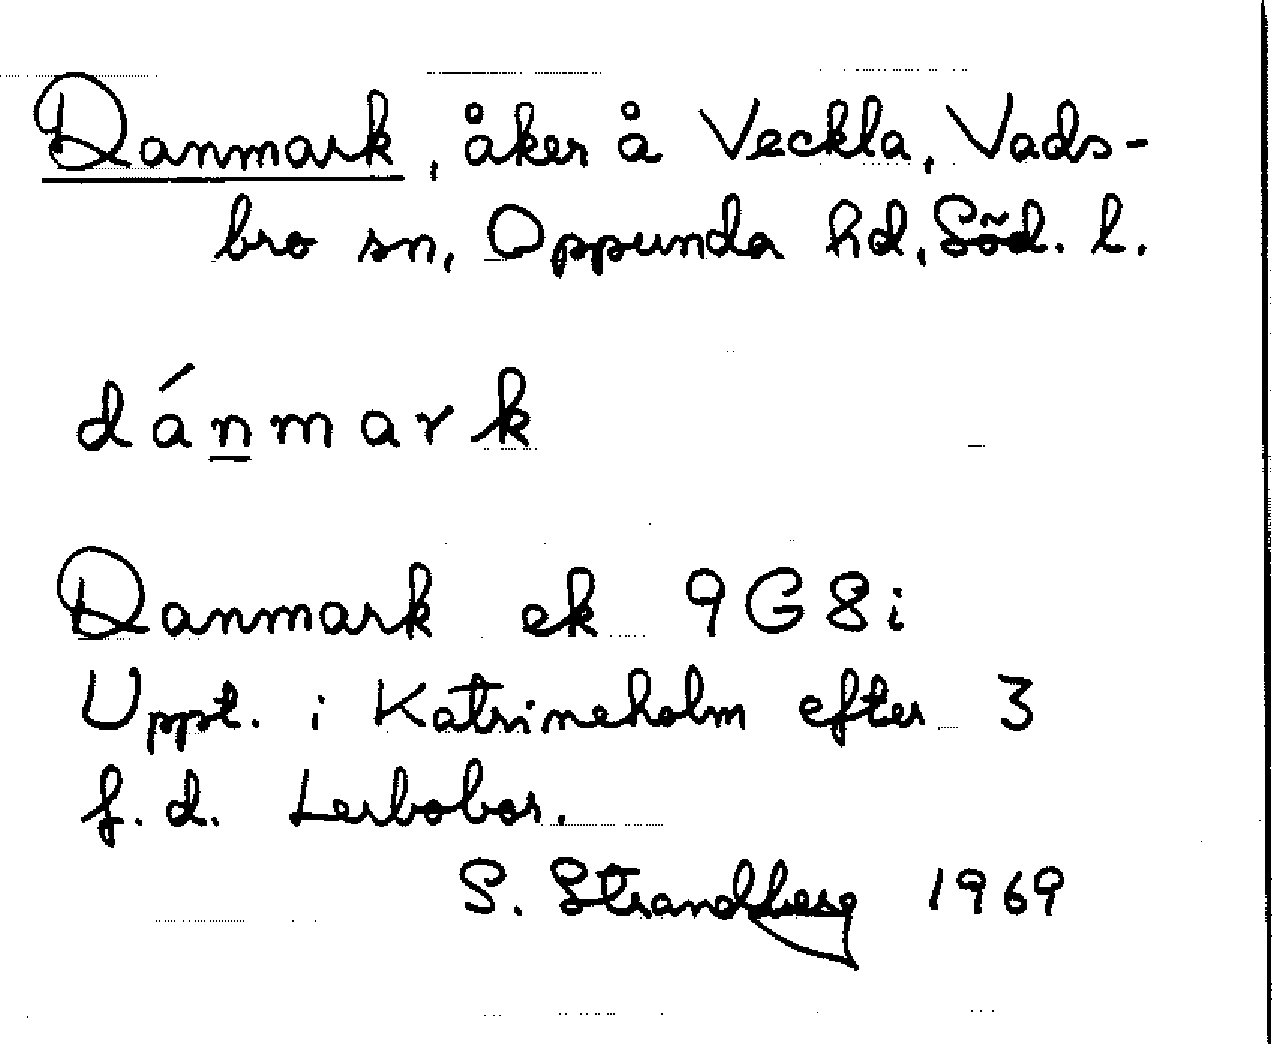 Danmark, åker å Veckla, Vads-
bro sn, Oppunda hd, Söd. l.
dánmark
Danmark ek 9G8i
Uppt. i Katrineholm efter 3
f.d. Lerbobor.
S. Strandberg 1969